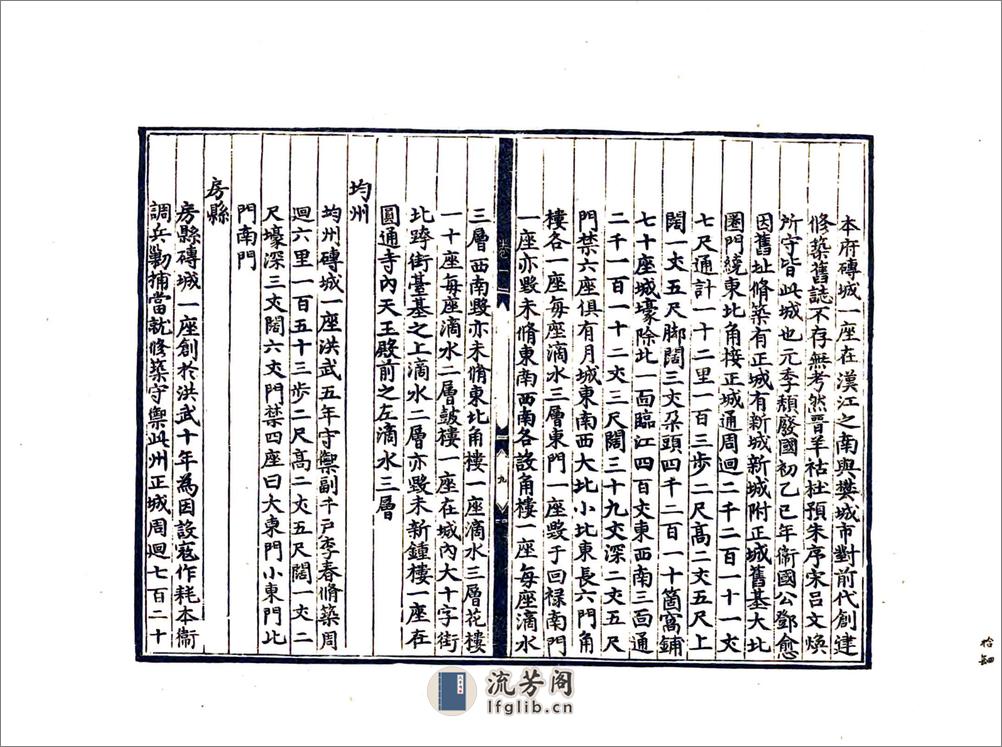 本府磚城一座在漢江之南與樊城市對前代創建
修築舊誌不存無考然晉羊祜杜預朱序宋呂文煥
所守皆此城也元季頹廢國初乙巳年衛國公鄧愈
因舊址脩築有正城有新城新城附正城舊基大北
圏門繞東北角接正城通周迴二千二百一十一丈
七尺通計一十二里一百三步二尺高二丈五尺上
闊一丈五尺脚闊三丈朵頭四千二百一十箇窩鋪
七十座城壕除北一面臨江四百丈東西南三面通
二千一百一十二丈三尺闊三十九丈深二丈五尺
門禁六座俱有月城東南西大北小北東長六門角
樓各一座每座滴水三層東門一座燬于回禄南門
一座亦燬未脩東南西南各設角樓一座每座滴水
九
三層西南燬亦未脩東北角樓一座滴水三層花樓
一十座每座滴水二層鼓樓一座在城內大十字街
北跨街臺基之上滴水二層亦燬未新鍾樓一座在
圓通寺內天王殿前之左滴水三層
均州
均州磚城一座洪武五年守禦副千戶李春脩築周
迴六里一百五十三步二尺高二丈五尺闊一丈二
尺壕深三丈闊六丈門禁四座曰大東門小東門北
門南門
房縣
房縣磚城一座創於洪武十年為因設寇作耗本衞
調兵勦捕當就修築守禦此州正城周迴七百二十
流芳阁
lfglib.cn